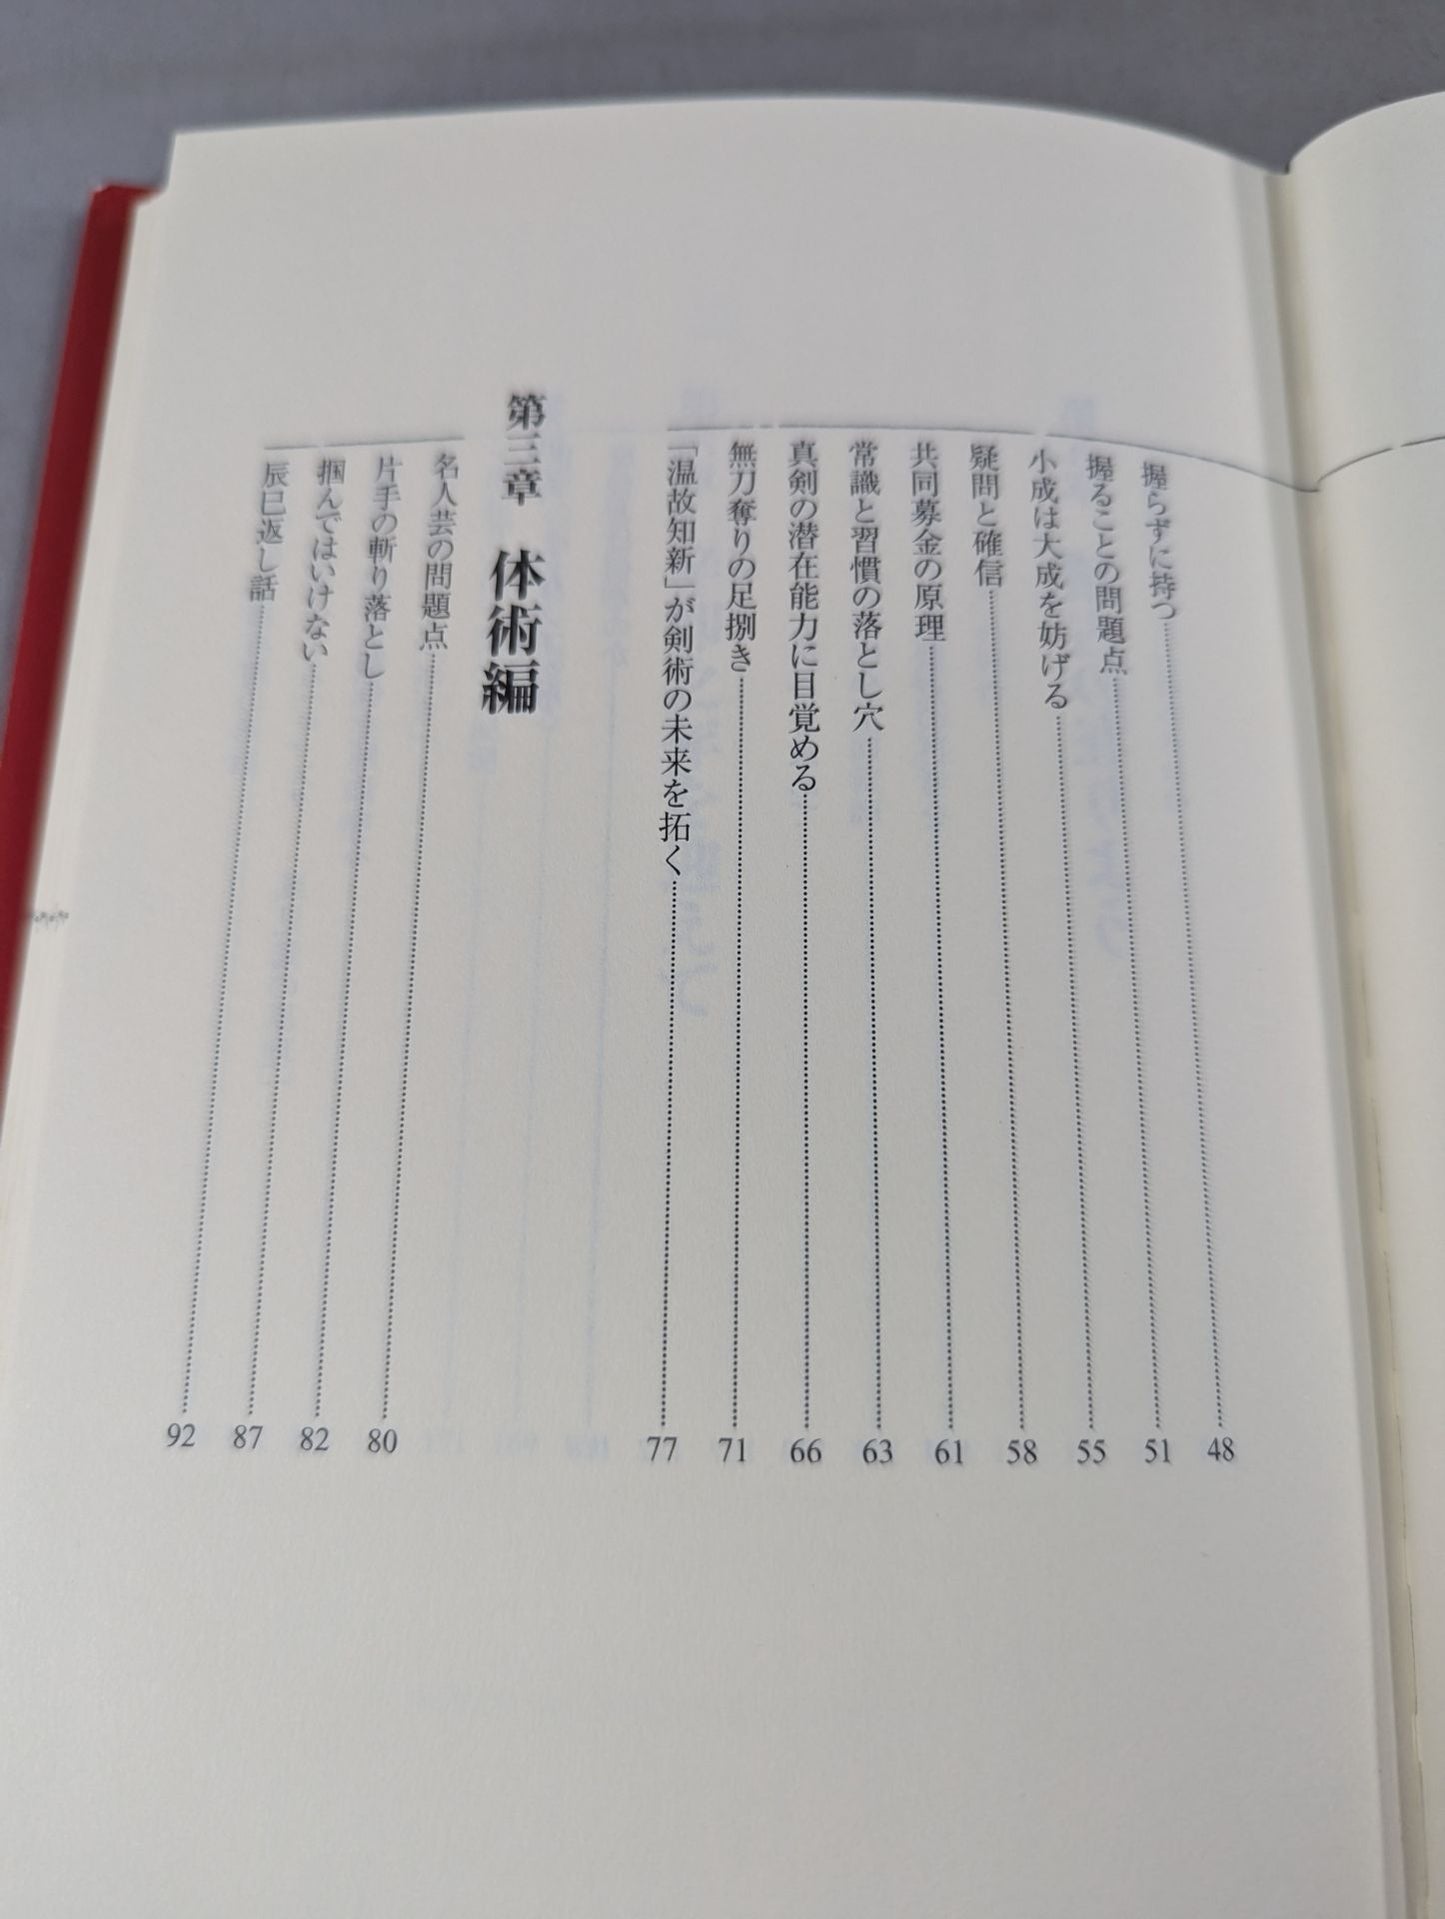 握らずに持つ……48
握ることの問題点……51
小成は大成を妨げる……55
疑問と確信……58
共同募金の原理……61
常識と習慣の落とし穴……63
真剣の潜在能力に目覚める……66
無刀奪りの足捌き……71
「温故知新」が剣術の未来を拓く……77
第三章　体術編
名人芸の問題点……80
片手の斬り落とし……82
掴んではいけない……87
辰巳返し話……92